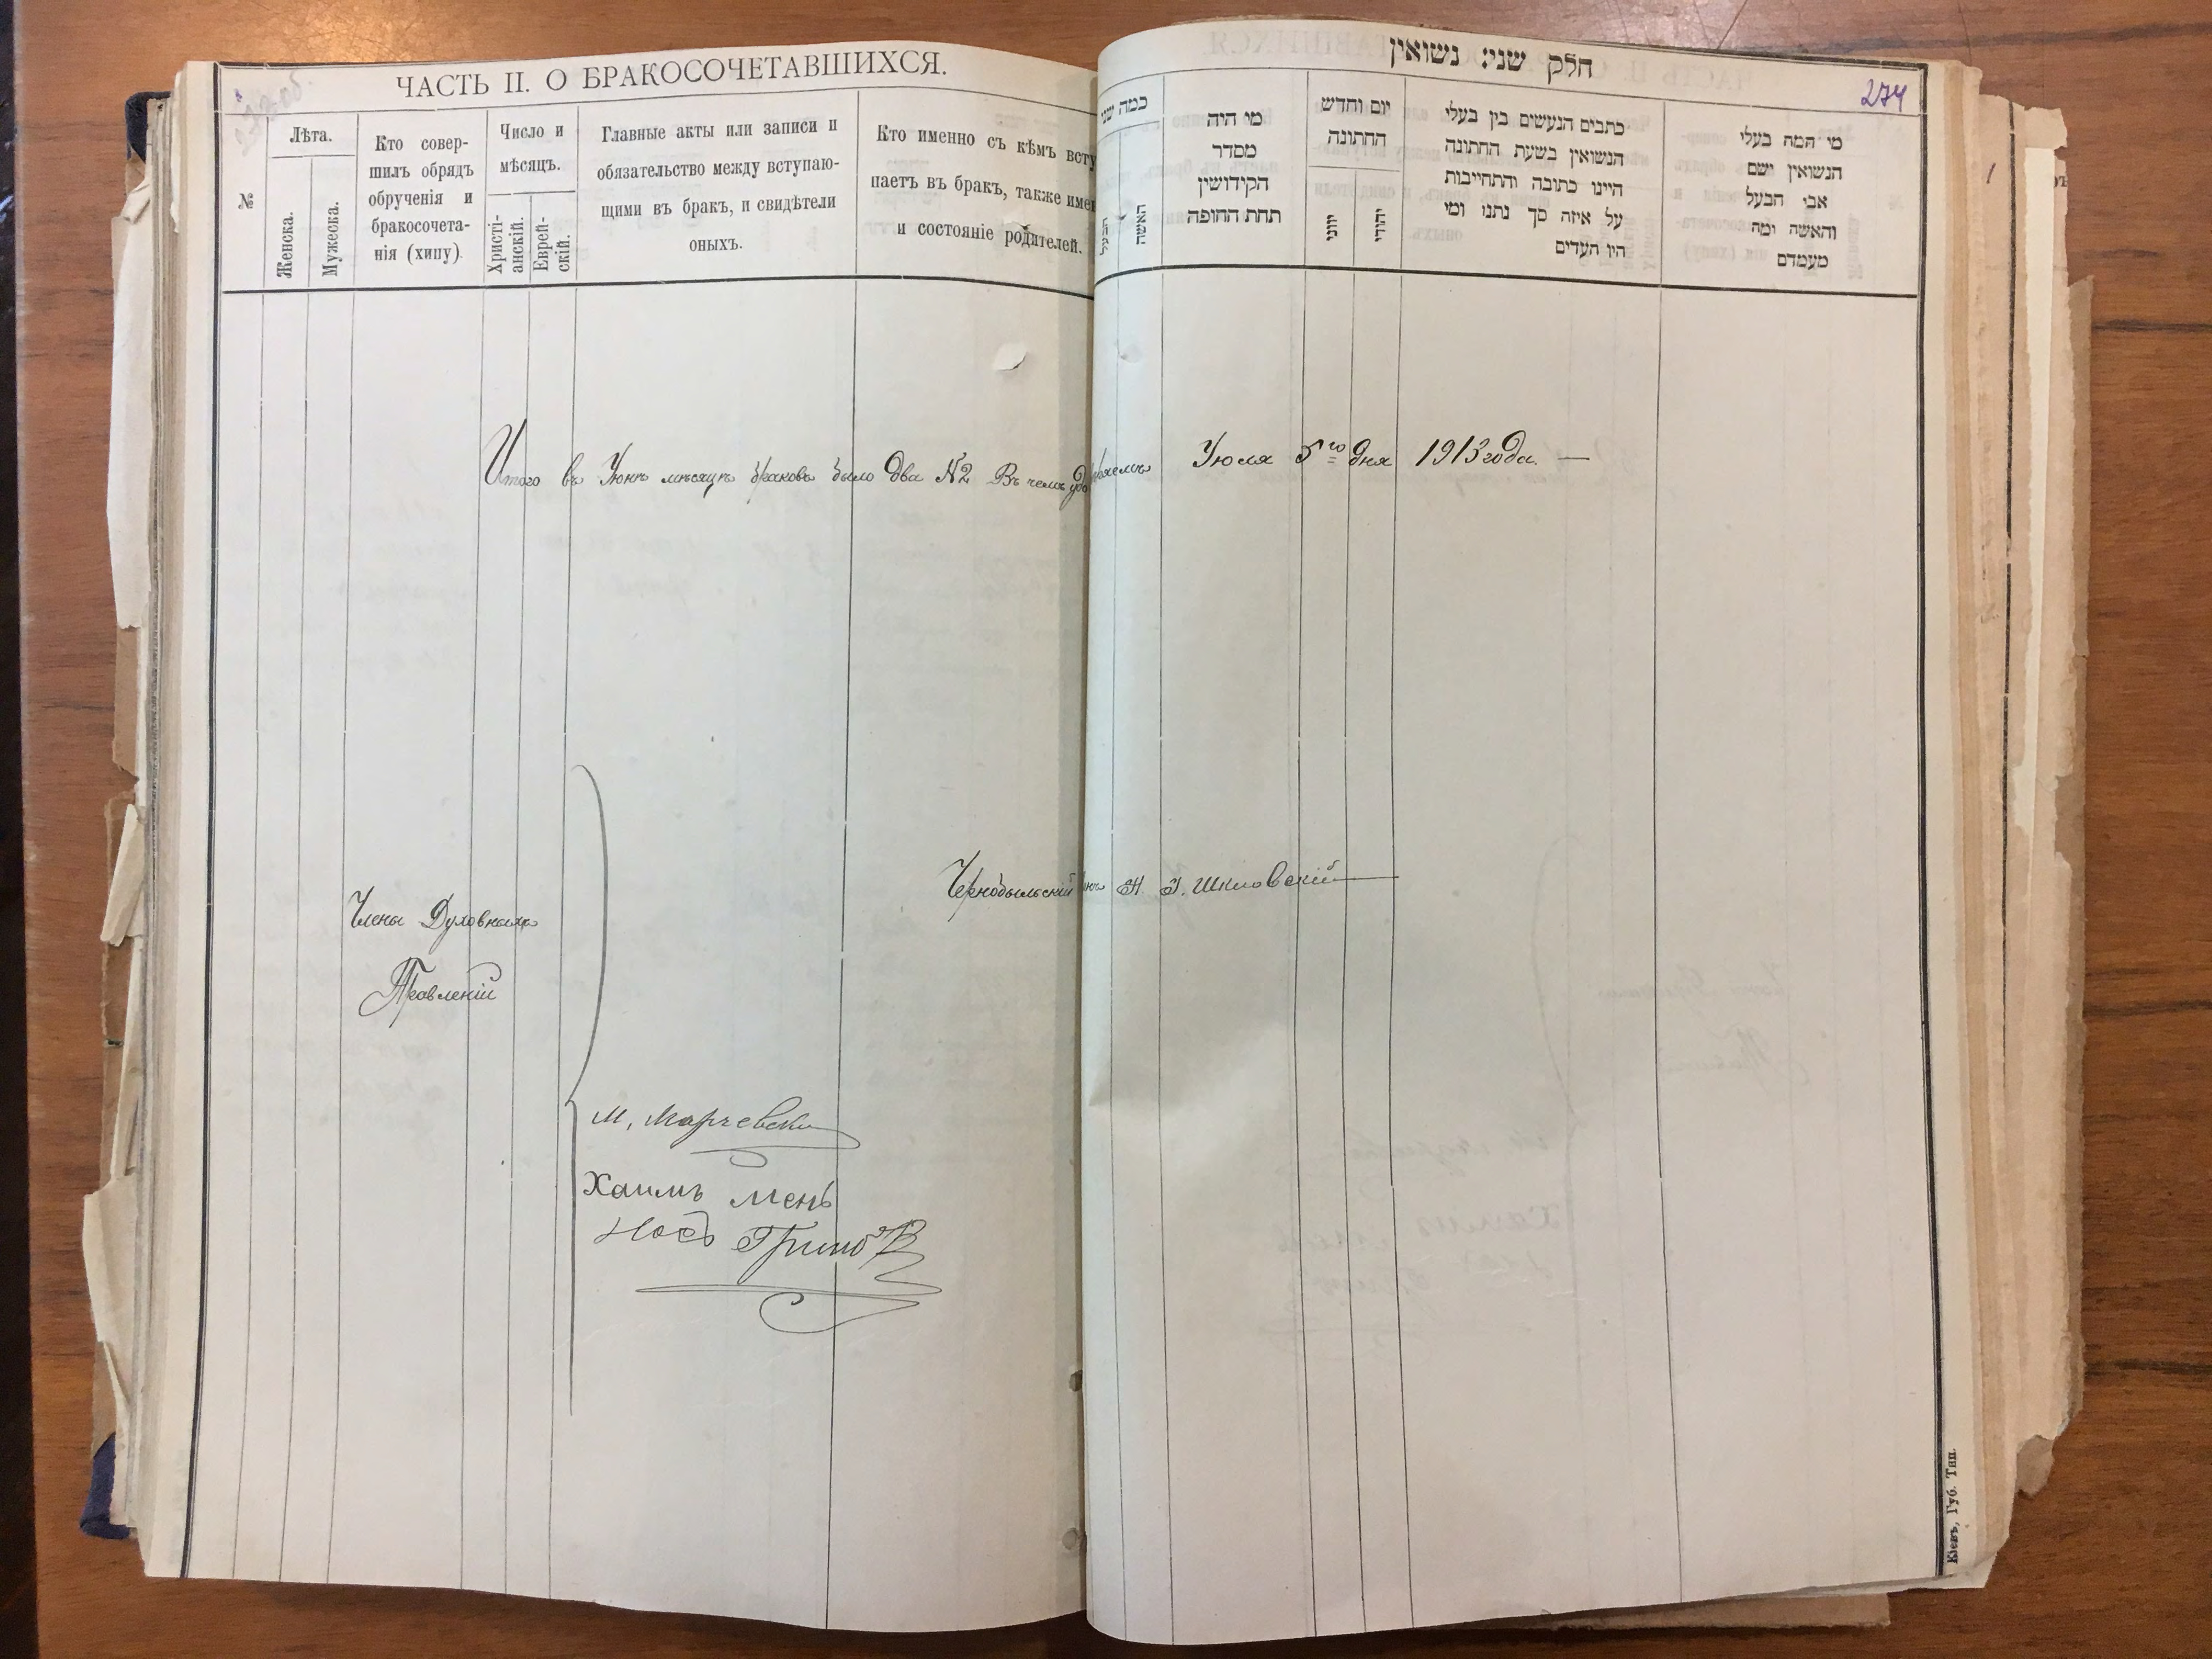 ЧАСТЬ II. О БРАКОСОЧЕТАВШИХСЯ.
№
Лѣта.
Женска.
Мужеска.
Кто совер-
шилъ обрядъ
обрученія и
бракосочета-
нія (хипу).
Число и
мѣсяцъ.
Христі-
анскій.
Еврей-
скій.
Главные акты или записи и
обязательство между вступаю-
щими въ бракъ, и свидѣтели
оныхъ.
Кто именно съ кѣмъ всту
паетъ въ бракъ, также име
и состояніе родителей.
חלק שני: נשואין
274
כמה שני
הבעל
האשה
מי היה
מסדר
הקידושין
תחת החופה
יום וחדש
החתונה
יווני
יהודי
כתבים הנעשים בין בעלי
הנשואין בשעת החתונה
היינו כתובה והתחייבות
על איזה סך נתנו ומי
היו העדים
מי המה בעלי
הנשואין ושם
אבי הבעל
והאשה ומה
מעמדם
Итого въ Юнѣ мѣсяцѣ браковъ было два №2 Въ чемъ Іюля 5го дня 1913 года. —
Чернобыльскій Н. І. Шкловскій
Члены Духовныхъ
Правленій
М. Марчевски
Хаимъ мень
Кіевъ, Губ. Тип.